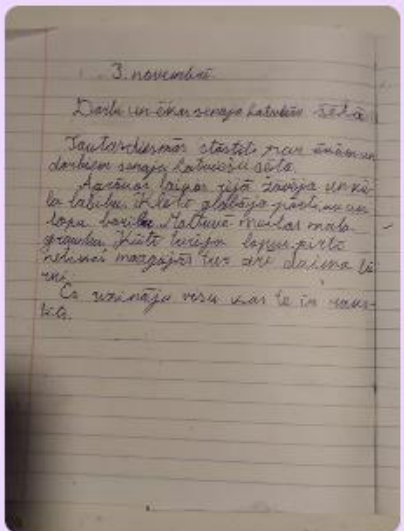 3. novembrī
Darbi un ēkas senajā latviešu sētā
Tautasdziesmās stāstīts par ēkām un
darbiem senajā latviešu sētā.
laikos rijā žāvēja un kū-
la labību, klētī glabāja pārtiku un
lopu barību. Maltuvē meitas mala
graudus. Kūtī turēja lopus, pirtī
mazgājās tur arī dzima bē
rni.
Es uzzināju visu kas te ir raks-
tīts.